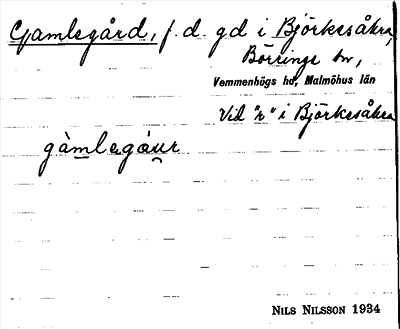 Gamlegård, f. d. gd i Björkesåkra,
Börringe sn,
Vemmenhögs hd, Malmöhus län
Vid "r" i Björkesåkra
gàmlegáur
NILS NILSSON 1934